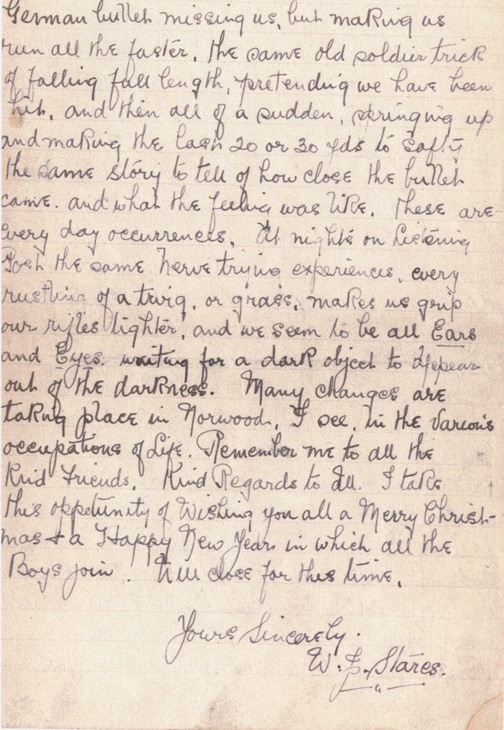 German bullet missing us, but making us
run all the faster. the same old soldier trick
of falling full length, pretending we have been
hit, and then all of a sudden, springing up
and making the last 20 or 30 yds to safty
the same story to tell of how close the bullet
came. and what the feeling was like. These are
every day occurrences. At nights on Listening
Post the same nerve trying experiences, every
rustling of a twig, or grass, makes us grip
our rifles tighter, and we seem to be all Ears
and Eyes waiting for a dark object to appear
out of the darkness. Many changes are
taking place in Norwood, I see, in the various
occupations of Life. Remember me to all the
Kind Friends. Kind Regards to all. I take
this oppetunity of Wishing you all a Merry Christ-
mas & a Happy New Year in which all the
Boys join. Will close for this time.
Yours Sincerely.
W. E. Stares.